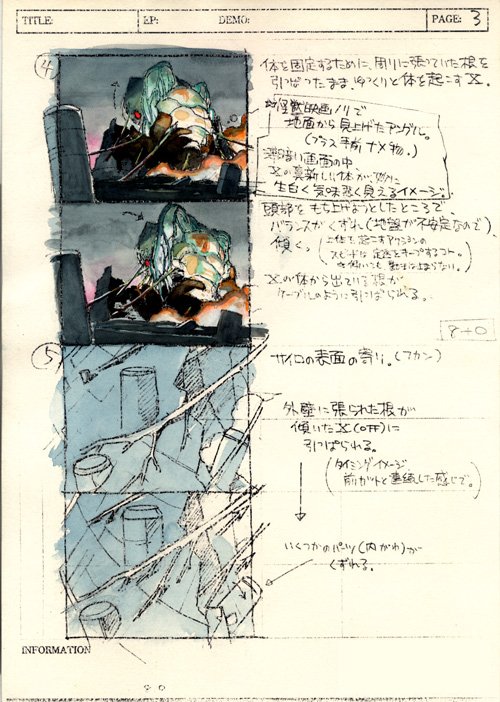 TITLE:
EP:
DEMO:
PAGE: 3
④
体を固定するために、周りに張っていた根を
引っぱったまま、ゆっくりと体を起こすX。
怪獣映画ノリで
地面から見上げたアングル。
(プラス手前ナメ物。)
薄暗い画面の中
Xの真新しい体が、
生白く気味悪く見えるイメージ。
頭部をもち上げようとしたところで、
バランスがくずれ(地盤が不安定なので)
傾く。
上体を起こすアクションの
スピードは
Xの体から出ている根が
ケーブルのように引っぱられる。
8+0
⑤
サイロの表面の寄り。(フカン)
外壁に張られた根が
傾いたX(OFF)に
引っぱられる。
(タイミングイメージ
前カットと連続した感じで。)
いくつかのパーツ(内がわ)が
くずれる。
INFORMATION